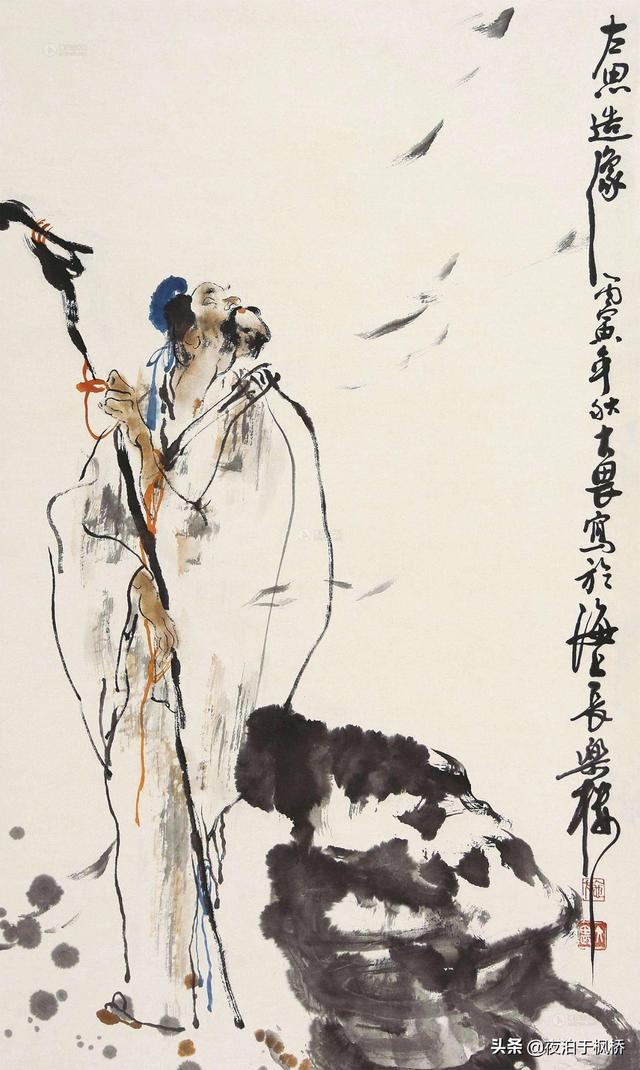 左思造像
丙寅年秋大畏寫於海上長樂樓
头条 @夜泊于枫桥